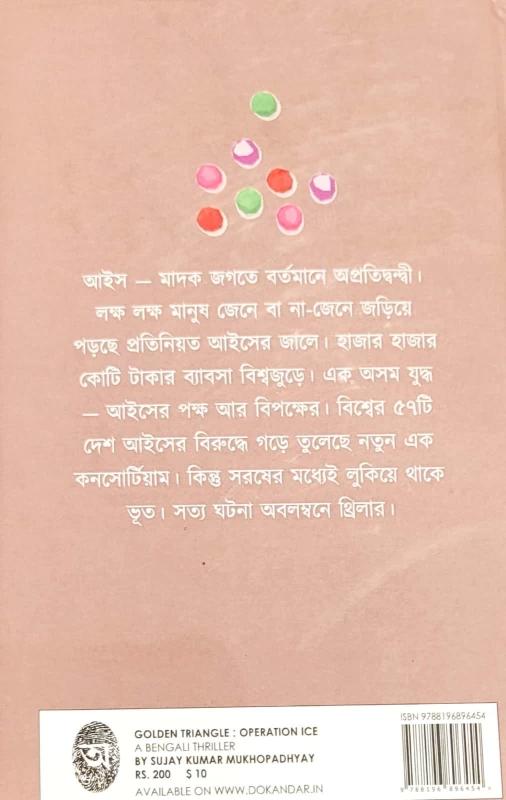 আইস — মাদক জগতে বর্তমানে অপ্রতিদ্বন্দ্বী।
লক্ষ লক্ষ মানুষ জেনে বা না-জেনে জড়িয়ে
পড়ছে প্রতিনিয়ত আইসের জালে। হাজার হাজার
কোটি টাকার ব্যাবসা বিশ্বজুড়ে। এক অসম যুদ্ধ
— আইসের পক্ষ আর বিপক্ষের। বিশ্বের ৫৭টি
দেশ আইসের বিরুদ্ধে গড়ে তুলেছে নতুন এক
কনসোর্টিয়াম। কিন্তু সরষের মধ্যেই লুকিয়ে থাকে
ভূত। সত্য ঘটনা অবলম্বনে থ্রিলার।
অ
GOLDEN TRIANGLE : OPERATION ICE
A BENGALI THRILLER
BY SUJAY KUMAR MUKHOPADHYAY
RS. 200 $ 10
AVAILABLE ON WWW.DOKANDAR.IN
ISBN 9788196896454
9 788196 896454 >